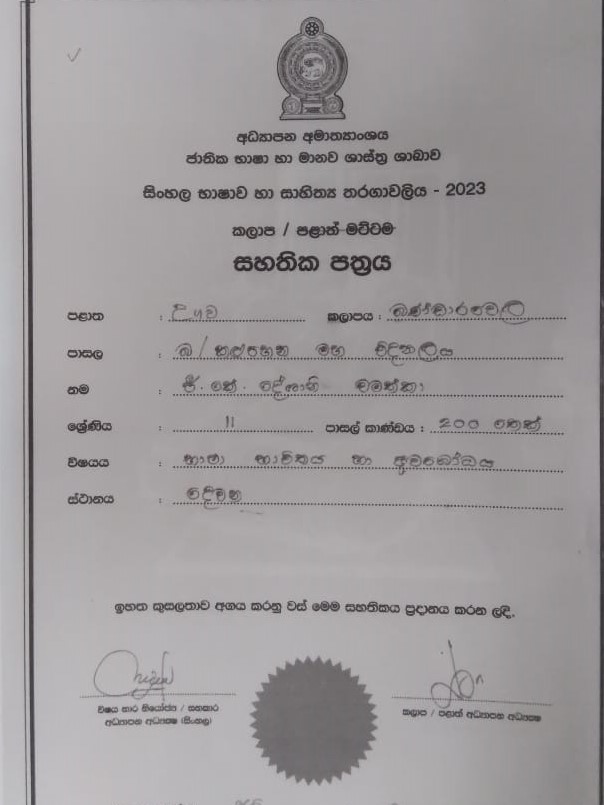 අධ්‍යාපන අමාත්‍යාංශය
ජාතික භාෂා හා මානව ශාස්ත්‍ර ශාඛාව
සිංහල භාෂාව හා සාහිත්‍ය තරගාවලිය - 2023
කලාප / පළාත් මට්ටම
සහතික පත්‍රය
පළාත : ඌව කලාපය : බණ්ඩාරවෙල
පාසල : බ/ කල්පොත්ත මහා විද්‍යාලය
නම : ජී. එන්.
ශ්‍රේණිය : 11 පාසල් කාණ්ඩය : 200 තෙක්
විෂයය : භාෂා භාවිතය හා අවබෝධය
ස්ථානය : දෙවන
ඉහත කුසලතාව අගය කරනු වස් මෙම සහතිකය ප්‍රදානය කරන ලදි.
විෂය භාර නියෝජ්‍ය / සහකාර
අධ්‍යාපන අධ්‍යක්ෂ (සිංහල)
කලාප / පළාත් අධ්‍යාපන අධ්‍යක්ෂ